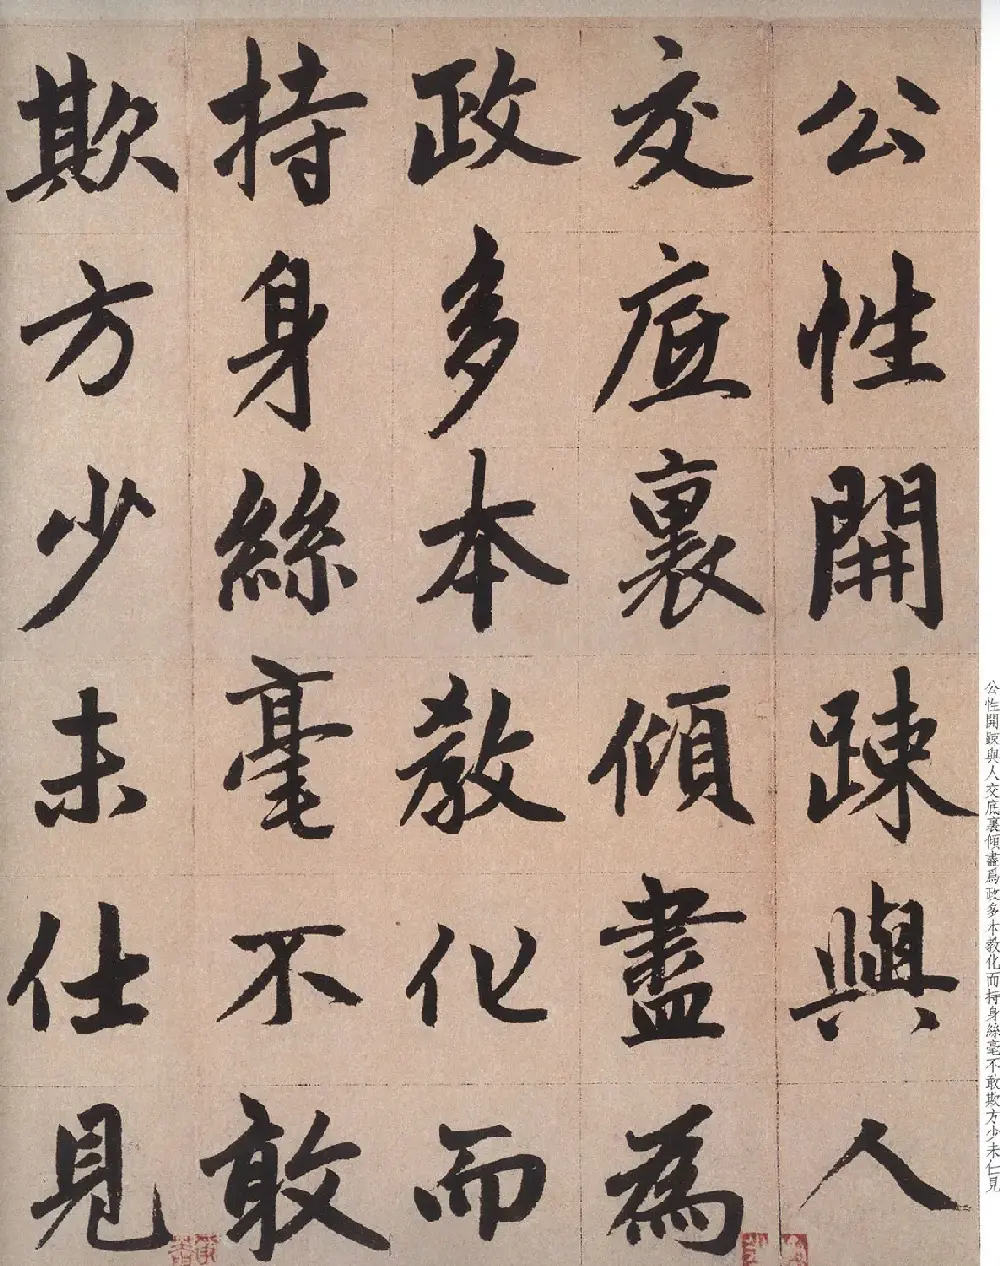 公性開踈與人
交底裏傾盡為
政多本教化而
持身絲毫不敢
欺方少未仕見
公性開踈與人交底裏傾盡爲政多本教化而持身絲毫不敢欺方少未仁見